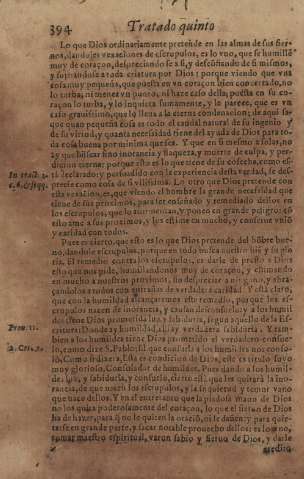 394 Tratado quinto
Lo que Dios ordinariamente pretende en las almas de sus sier-
nos, dandoles vexaciones de escrupulos, es lo vno, que se humillē
muy de coraçon, despreciandose a si, y desconfiando de si mismos,
y sujetandose a toda criatura por Dios; porque viendo que vna
cosa muy pequeña, que puesta en vn coraçon bien concertado, no
lo turba, ni mueve vn punto, ni haze caso della; puesta en su co-
raçon lo turba, y lo inquieta sumamente, y le parece, que es vn
caso grauissimo, que lo lleua a la eterna condenacion; de aqui sa-
que quan pequeña cosa es todo el caudal natural de su ingenio y
de su virtud, y quanta necessidad tiene del ayuda de Dios para to-
da cosa buena por minima que sea. Y que en si mismo a solas, no
ay que buscar sino ignorancia y flaqueza, y muerte de culpa, y per-
dicion eterna: porque esto es lo que tiene de su cosecha, como es-
In trat. 3. tà declarado; y persuadido con la experiencia desta verdad, se des-
precie como cosa de si vilissima. Lo otro que Dios pretende con
esta vexacion, es, que viendo el hombre la grande necessidad que
tiene de sus proximos, para ser enseñado y remediado dellos en
los escrupulos, que lo atormentan, y ponen en grande peligro: cō
esto ame a sus proximos, y los estime en mucho, y conserue vniō
y caridad con todos.
Pues es cierto, que esto es lo que Dios pretende del hōbre bue-
no, dandole escrupulos, porque en todo busca nuestro biē y su glo
ria. El remedio contra los escrupulos, es darle de presto a Dios
esto que nos pide, humillandonos muy de coraçon, y estimando
en mucho a nuestros proximos, no despreciar a ninguno, y abra-
çandolos a todos con entrañas de verdadera caridad. Y està claro,
que con la humildad alcançaremos este remedio, porque los es-
crupulos nacen de ignorancia, y causan desconsuelo, y a los humil
des tiene Dios prometida luz, y sabiduria, segun aquello de la Es-
Prou. 11. critura: Donde ay humildad, alli ay verdadera sabiduria. Y tam-
bien a los humildes tiene Dios prometido el verdadero consue-
2. Cor. 7. lo, como dize S. Pablo: El que consuela a los humildes nos conso-
lò. Como si dixera; Esta es condicion de Dios, este es titulo suyo
muy glorioso, Consolador de humildes. Pues dando a los humil-
des luz, y sabiduria, y consuelo, cierto es, que les quitarà la ino-
rancia, de que nacen los escrupulos, y la inquietud y temor vano
que nace dellos. Y en el entretanto que la piadosa mano de Dios
no los quita poderosamente del coraçon, lo que el sieruo de Dios
ha de hazer, para q̄ no le quiten la oraciō, ni le dañen; y para quie-
tarse en grande parte, y sacar notable prouecho dellos: es lo vno,
tomar maestro espiritual, varon sabio y sieruo de Dios, y darle
credito